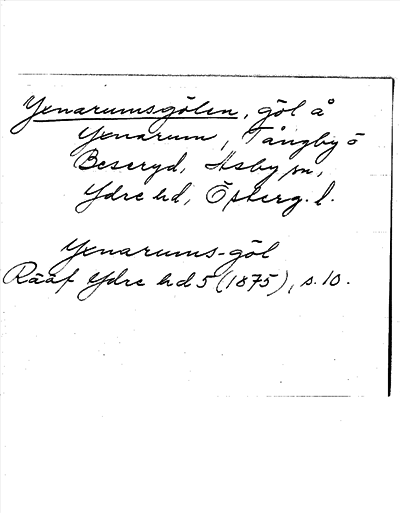 Yxnarumsgölen, göl å
Yxnarum, Tångby o
Beseryd, Asby sn,
Ydre hd, Österg. l.
Yxnarums-göl
Rääf Ydre hd 5 (1875), s. 10.